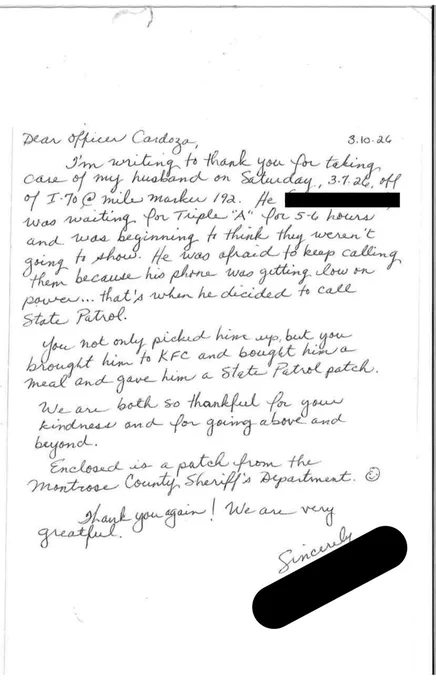 Dear Officer Cardoza,
3.10.26
I'm writing to thank you for taking
care of my husband on Saturday, 3.7.26, off
of I-70 @ mile marker 192. He
was waiting for Triple "A" for 5-6 hours
and was beginning to think they weren't
going to show. He was afraid to keep calling
them because his phone was getting low on
power... that's when he decided to call
State Patrol.
You not only picked him up, but you
brought him to KFC and bought him a
meal and gave him a State Patrol patch.
We are both so thankful for your
kindness and for going above and
beyond.
Enclosed is a patch from the
Montrose County Sheriff's Department. ☺
Thank you again! We are very
greatful.
Sincerely